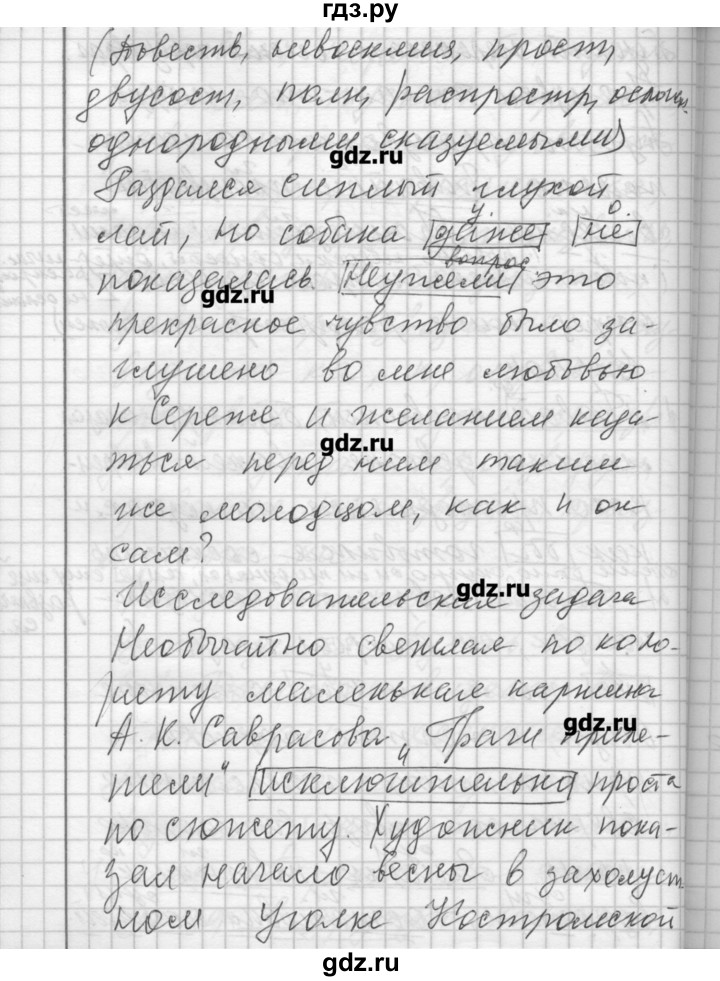 гдз.ру
(Повеств, невосклиц, прост,
двусост, полн, распростр, осложн.
однородными сказуемыми)
gdz.ru
Раздался сиплый глухой
у. о.
лай, но собака даже не
вопрос
показалась. Неужели это
gdz.ru
прекрасное чувство было за-
глушено во мне любовью
к Сереже и желанием каза-
gdz.ru
ться перед ним таким
же молодцом, как и он
сам?
gdz.ru
Исследовательская задача
Необычайно свежая по коло-
риту маленькая картина
gdz.ru
А. К. Саврасова "Грачи приле-
тели" исключительно проста
по сюжету. Художник пока-
зал начало весны в захолуст
ном уголке Костромской
gdz.ru